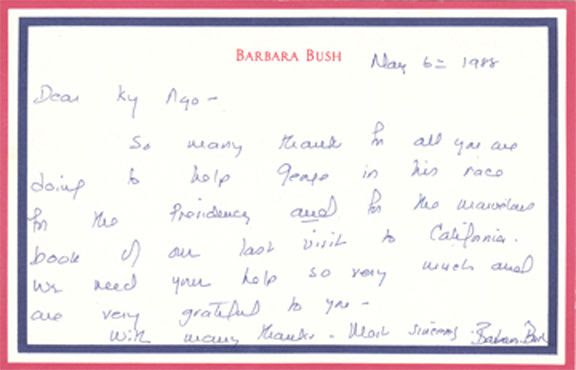 BARBARA BUSH
May 6th 1988
Dear Ky Ngo -
So many thanks for all you are
doing to help George in his race
for the Presidency and for the marvelous
book of our last visit to California.
We need your help so very much and
are very grateful to you -
With many thanks - Most sincerely Barbara Bush